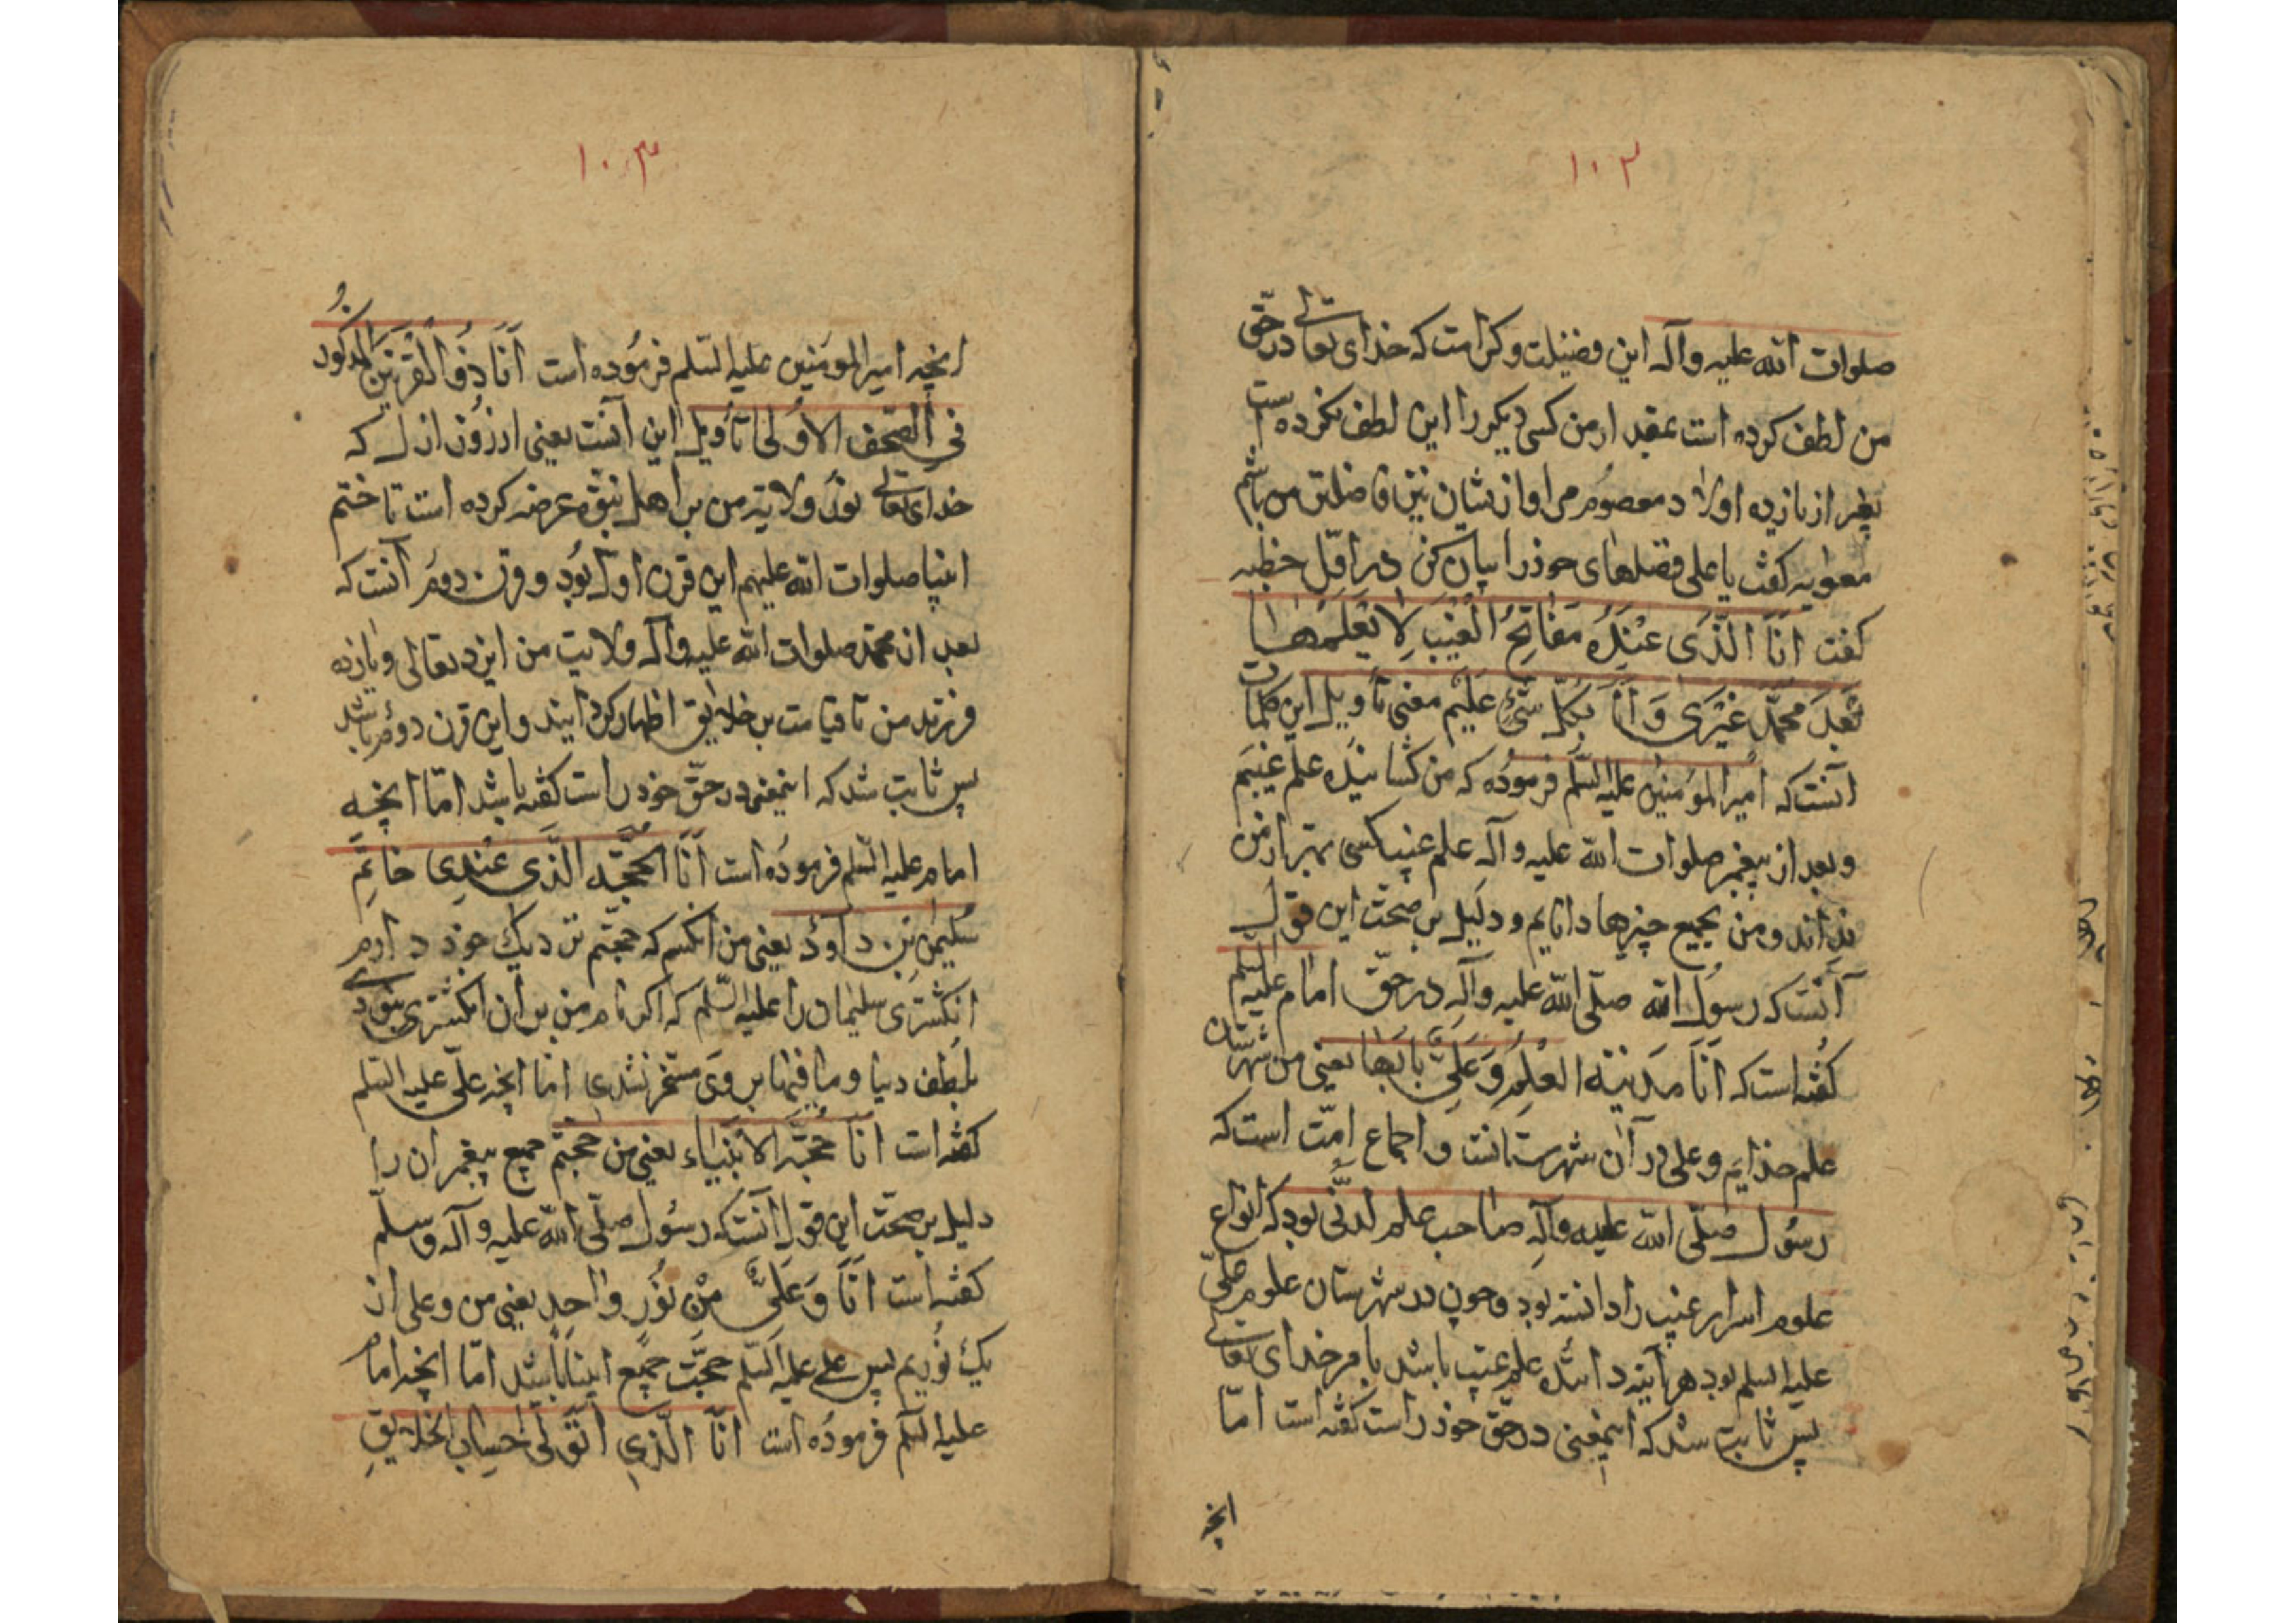 ١٠٢
صلوات الله علیه وآله این فضیلت وکرامت که خدای تعالے در حق
من لطف کرده است بعد از من کسی دیکر را این لطف نکرده است
بغیر از یازده اولاد معصوم مرا و از یشان نیز فاضلتر من باشم
معویه کفت یا علی فضلهای خوذ را بیان کن در اوّل خطبه
کفت اَنَا الَّذی عِنْدَهُ مَفَاتِحُ الْغَیْبِ لا یَعْلَمُهَا
بَعْدَ مُحَمَّدٍ غَیْری وَ اَنَا بِکُلِّ شَیْءٍ عَلیم معنی تاویل این کلمات
آنست که امیر المؤمنین علیه السّلم فرموده که من کشاینده علم غیبم
و بعد از پیغمبر صلوات الله علیه وآله علم غیب کسی بهتر از من
نداند و من بجمیع چیزها دانایم و دلیل بر صحّت این قول
آنست که رسول الله صلّی الله علیه وآله در حقّ امام علیه السلم
کفته است که اَنَا مَدینَة العِلْمِ وَ عَلِیٌّ بابُهَا یعنی من شهرستان
علم خدایم و علی در آن شهرستانست و اجماع امّت است که
رسُول صلّی الله علیه وآله صاحب علم لدنّی بود که انواع
علوم اسرار غیب را دانسته بود و چون در شهرستان علوم علیّ
علیه السلم بود هر آینه داننده علم غیب باشد بامر خدای تعالے
پس ثابت شد که اینمعنی در حقّ خوذ راست کفته است امّا
انچه
١٠٣
انچه امیر المومنین علیه السّلم فرموده است اَنَا ذُو الْقَرْنَیْنِ الْمَذکُورُ
فی الصُّحف الاُولی تأویل این آنست یعنی از روز ازل که
خدای تعالے نور ولایة من بر اهل نبوّة عرضه کرده است تا ختم
انبیا صلوات الله علیهم این قرن اول بُود و قرن دوم آنست که
بعد از محمّد صلوات الله علیه وآله ولایت من ایزد تعالی و یازده
فرزند من تا قیامت بر خلایق اظهار کردانیند و این قرن دوم باشد
پس ثابت شد که اینمعنی در حقّ خود راست کفته باشد امّا انچه
امام علیه السّلم فرموده است اَنَا الحُجَّة الَّذی عِنْدِی خاتَم
سُلیمن بْن داود یعنی من انکسم که حجّتم نزدیک خوذ دارم
انکشتری سلیمان را علیه السّلم که اکر نام من بر ان انکشتری نبودے
بلطف دنیا و ما فیها بر وی مسخّر نشدی امّا انچه علیّ علیه السّلم
کفته است اَنَا حُجَّة الاَنْبیَاء یعنی من حجّتم جمیع پیغمبران را
دلیل بر صحّت این قول آنست که رسُول صلّی الله علیه وآله وسلّم
کفته است اَنَا وَ عَلِیٌّ مِنْ نُورٍ واحِدٍ یعنی من و علی از
یک نُوریم پس علے علیه السّلم حجَّت جمیع انبیا باشد امّا انچه امام
علیه السّلم فرموده است اَنَا الَّذی اَتَوَلّی حِسابَ الخَلایِقِ